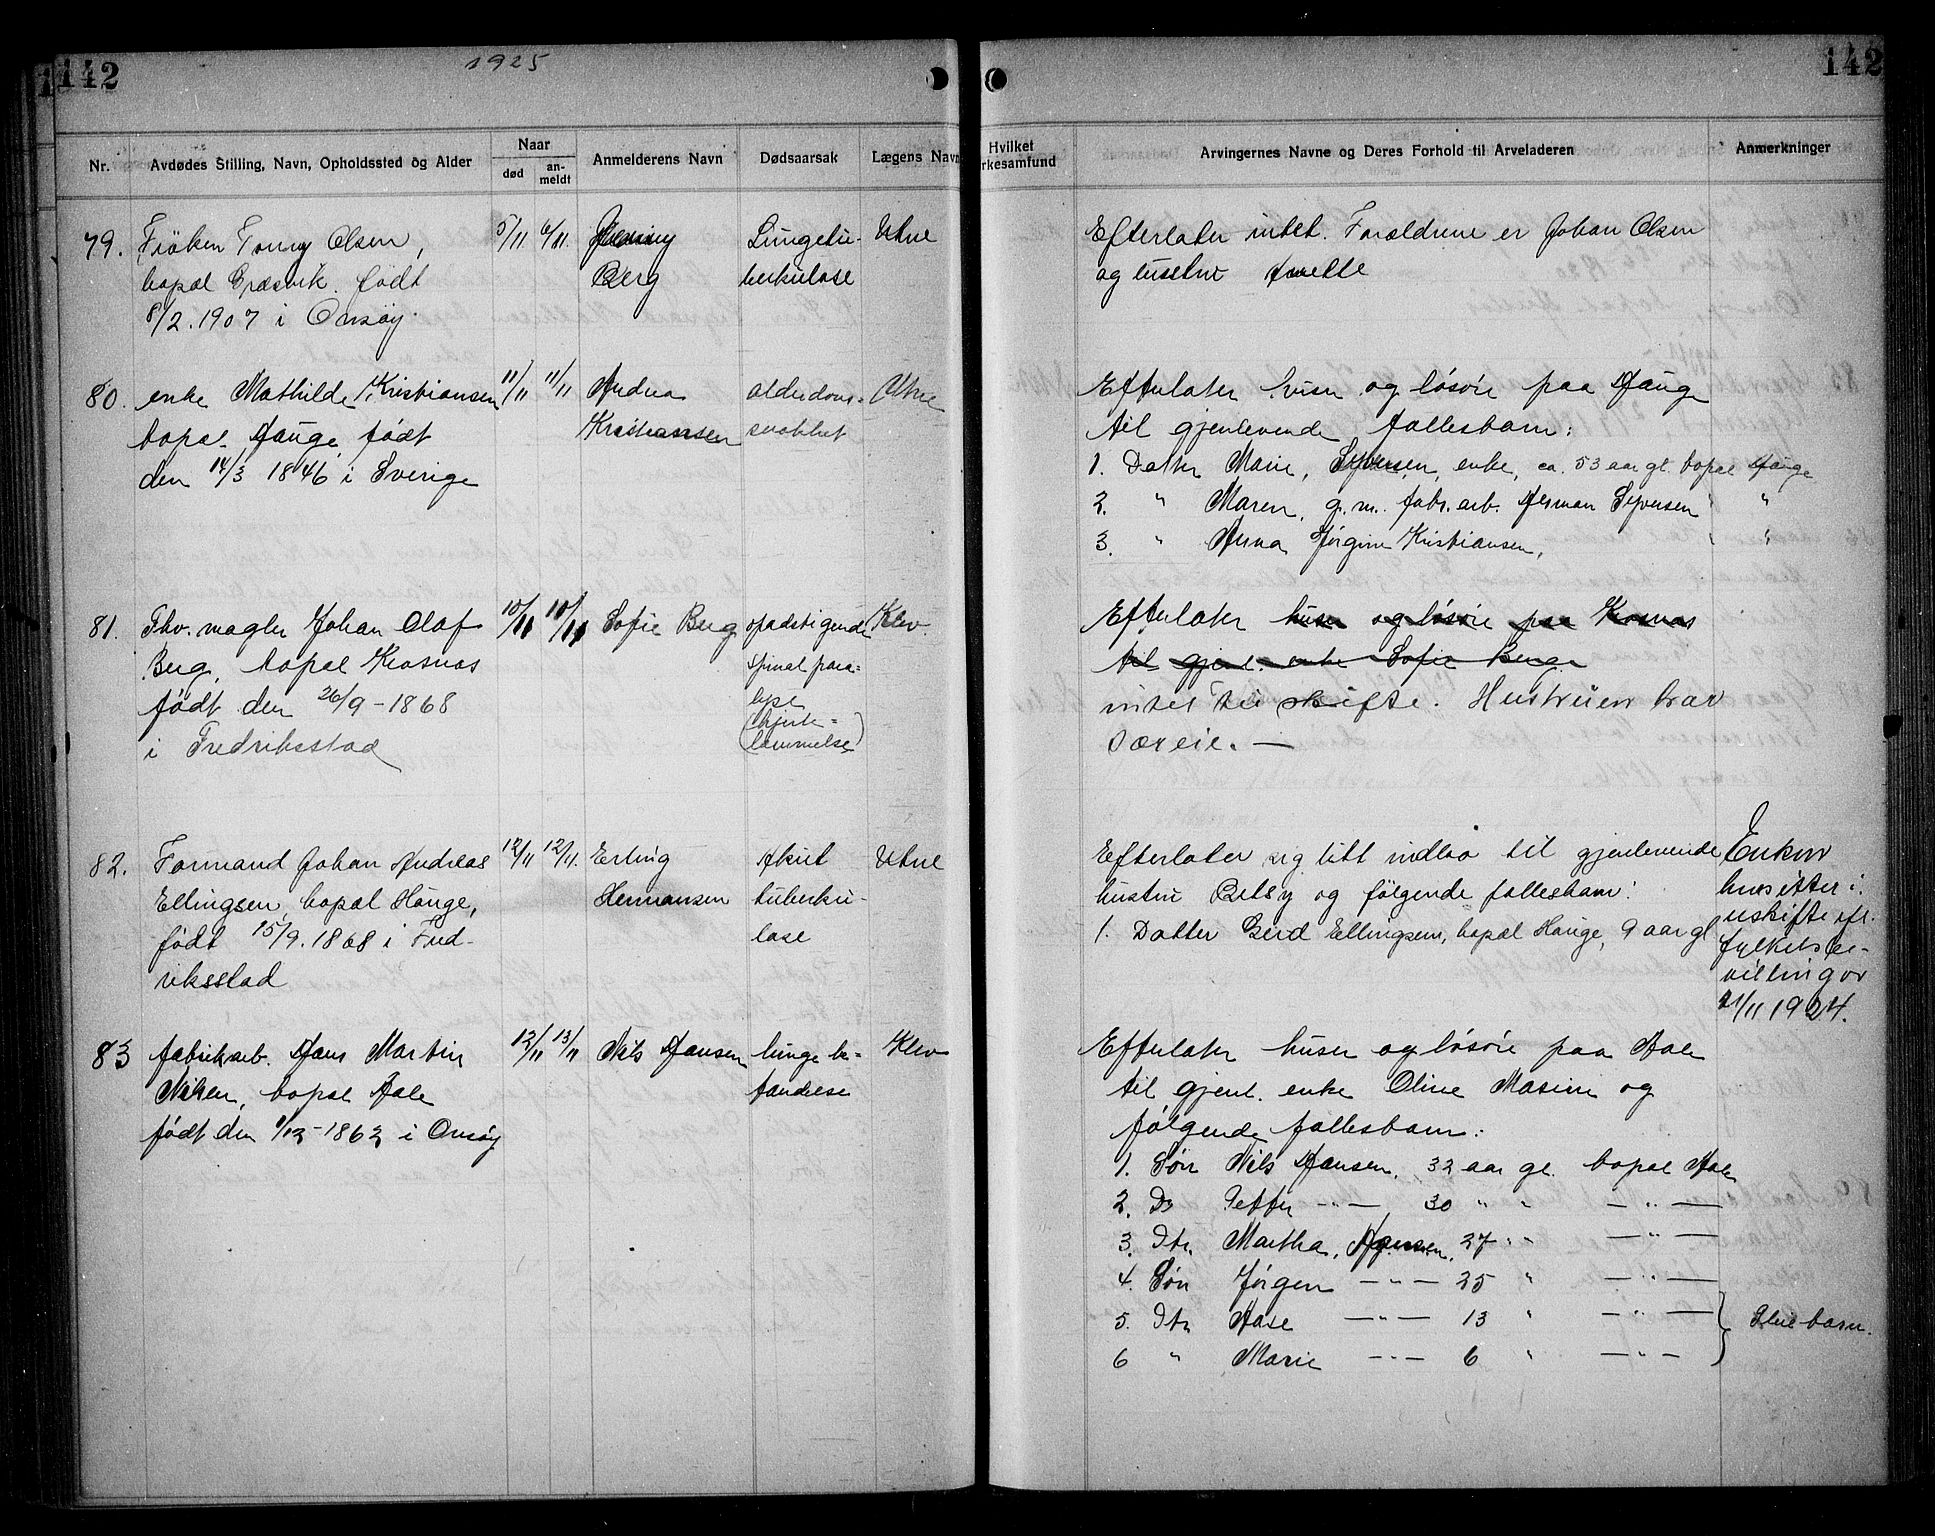 142
1925
142
Nr.
Avdødes Stilling, Navn, Opholdssted og Alder
Naar
død
an-
meldt
Anmelderens Navn
Dødsaarsak
Lægens Navn
Hvilket
rkesamfund
Arvingernes Navne og Deres Forhold til Arveladeren
Anmerkninger
79.
Frøken Tonny Olsen,
bopæl Græsvik. født
8/2.1907 i Onsøy.
5/11 6/11.
Berg
Lungetu-
berkulose
Utne
Efterlater intet. Forældrene er Johan Olsen
og hustru Anette
80.
enke Mathilde Kristiansen
bopæl Hauge, født
den 14/3 1846 i Sverige
11/11 11/11
Andrea
Kristiansen
alderdoms-
svakhet
Utne
Efterlater huser og løsøre paa Hauge
til gjenlevende fællesbarn:
1. Datter Marie, Syversen, enke, ca. 53 aar gl. bopæl Hauge
2. " Maren, g.m. fabr.arb. Herman Syversen " "
3. " Anna Jørgine Kristiansen, " "
81.
Thv. mægler Johan Olaf
Berg, bopæl Krosnæs
født den 26/9-1868
i Fredriksstad
10/11 10/11
Sofie Berg
opadstigende
spinal para-
lyse
(hjerte-
lammelse)
Klev.
Efterlater huser og løsøre paa Krosnæs
til gjenl. enke Sofie Berg
intet til skifte. Hustruen har
særeie. —
82.
Formand Johan Andreas
Ellingsen, bopæl Hauge,
født 15/9.1868 i Fred-
riksstad
12/11 12/11.
Erling
Hermansen
Akut
tuberku-
lose
Utne
Efterlater sig litt indbo til gjenlevende
hustru Betsy og følgende fællesbarn:
1. Datter Gerd Ellingsen, bopæl Hauge, 9 aar gl
Enken
hensitter i
uskifte efr.
fylkets be-
villing av
21/11 1924.
83
fabrikarb. Hans Martin
Nilsen, bopæl Aale
født den 9/12-1862 i Onsøy
12/11 13/11
Nils Hansen
lungebe-
tændelse
Klev
Efterlater huser og løsøre paa Aale
til gjenl. enke Oline Masine og
følgende fællesbarn:
1. Søn Nils Hansen, 32 aar gl. bopæl Aale
2. Do Petter — " — 30 " " — " —
3. Dtr. Martha, Hansen, 27 " " — " —
4. Søn Jørgen — " — 25 " — " —
5. Dtr. Aase — " — 13 " — " —
6 " Marie — " — 6 " — " —
Pleiebarn.